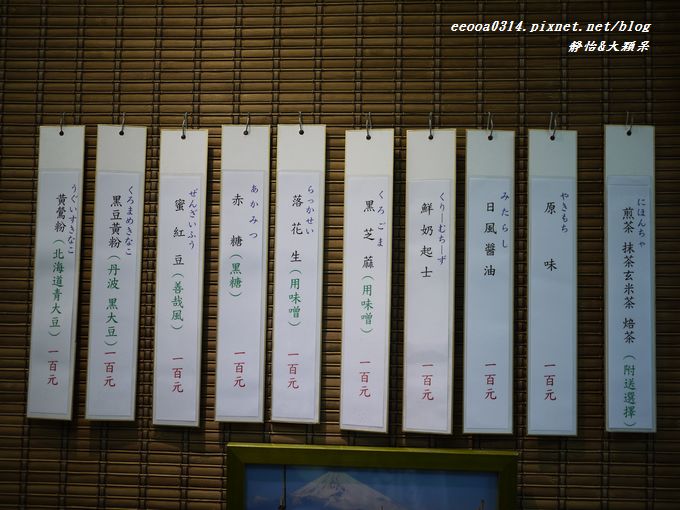 eeooa0314.pixnet.net/blog
靜怡&大顆呆
にほんちゃ
煎茶 抹茶玄米茶 焙茶(附送選擇)
やきもち
原味
みたらし
日風醬油 一百元
くりーむちーず
鮮奶起士 一百元
くろごま
黑芝蔴(用味噌) 一百元
らっかせい
落花生(用味噌) 一百元
あかみつ
赤糖(黑糖) 一百元
ぜんざいふう
蜜紅豆(善哉風) 一百元
くろまめきなこ
黑豆黃粉(丹波 黑大豆) 一百元
うぐいすきなこ
黃鶯粉(北海道青大豆) 一百元
一百元